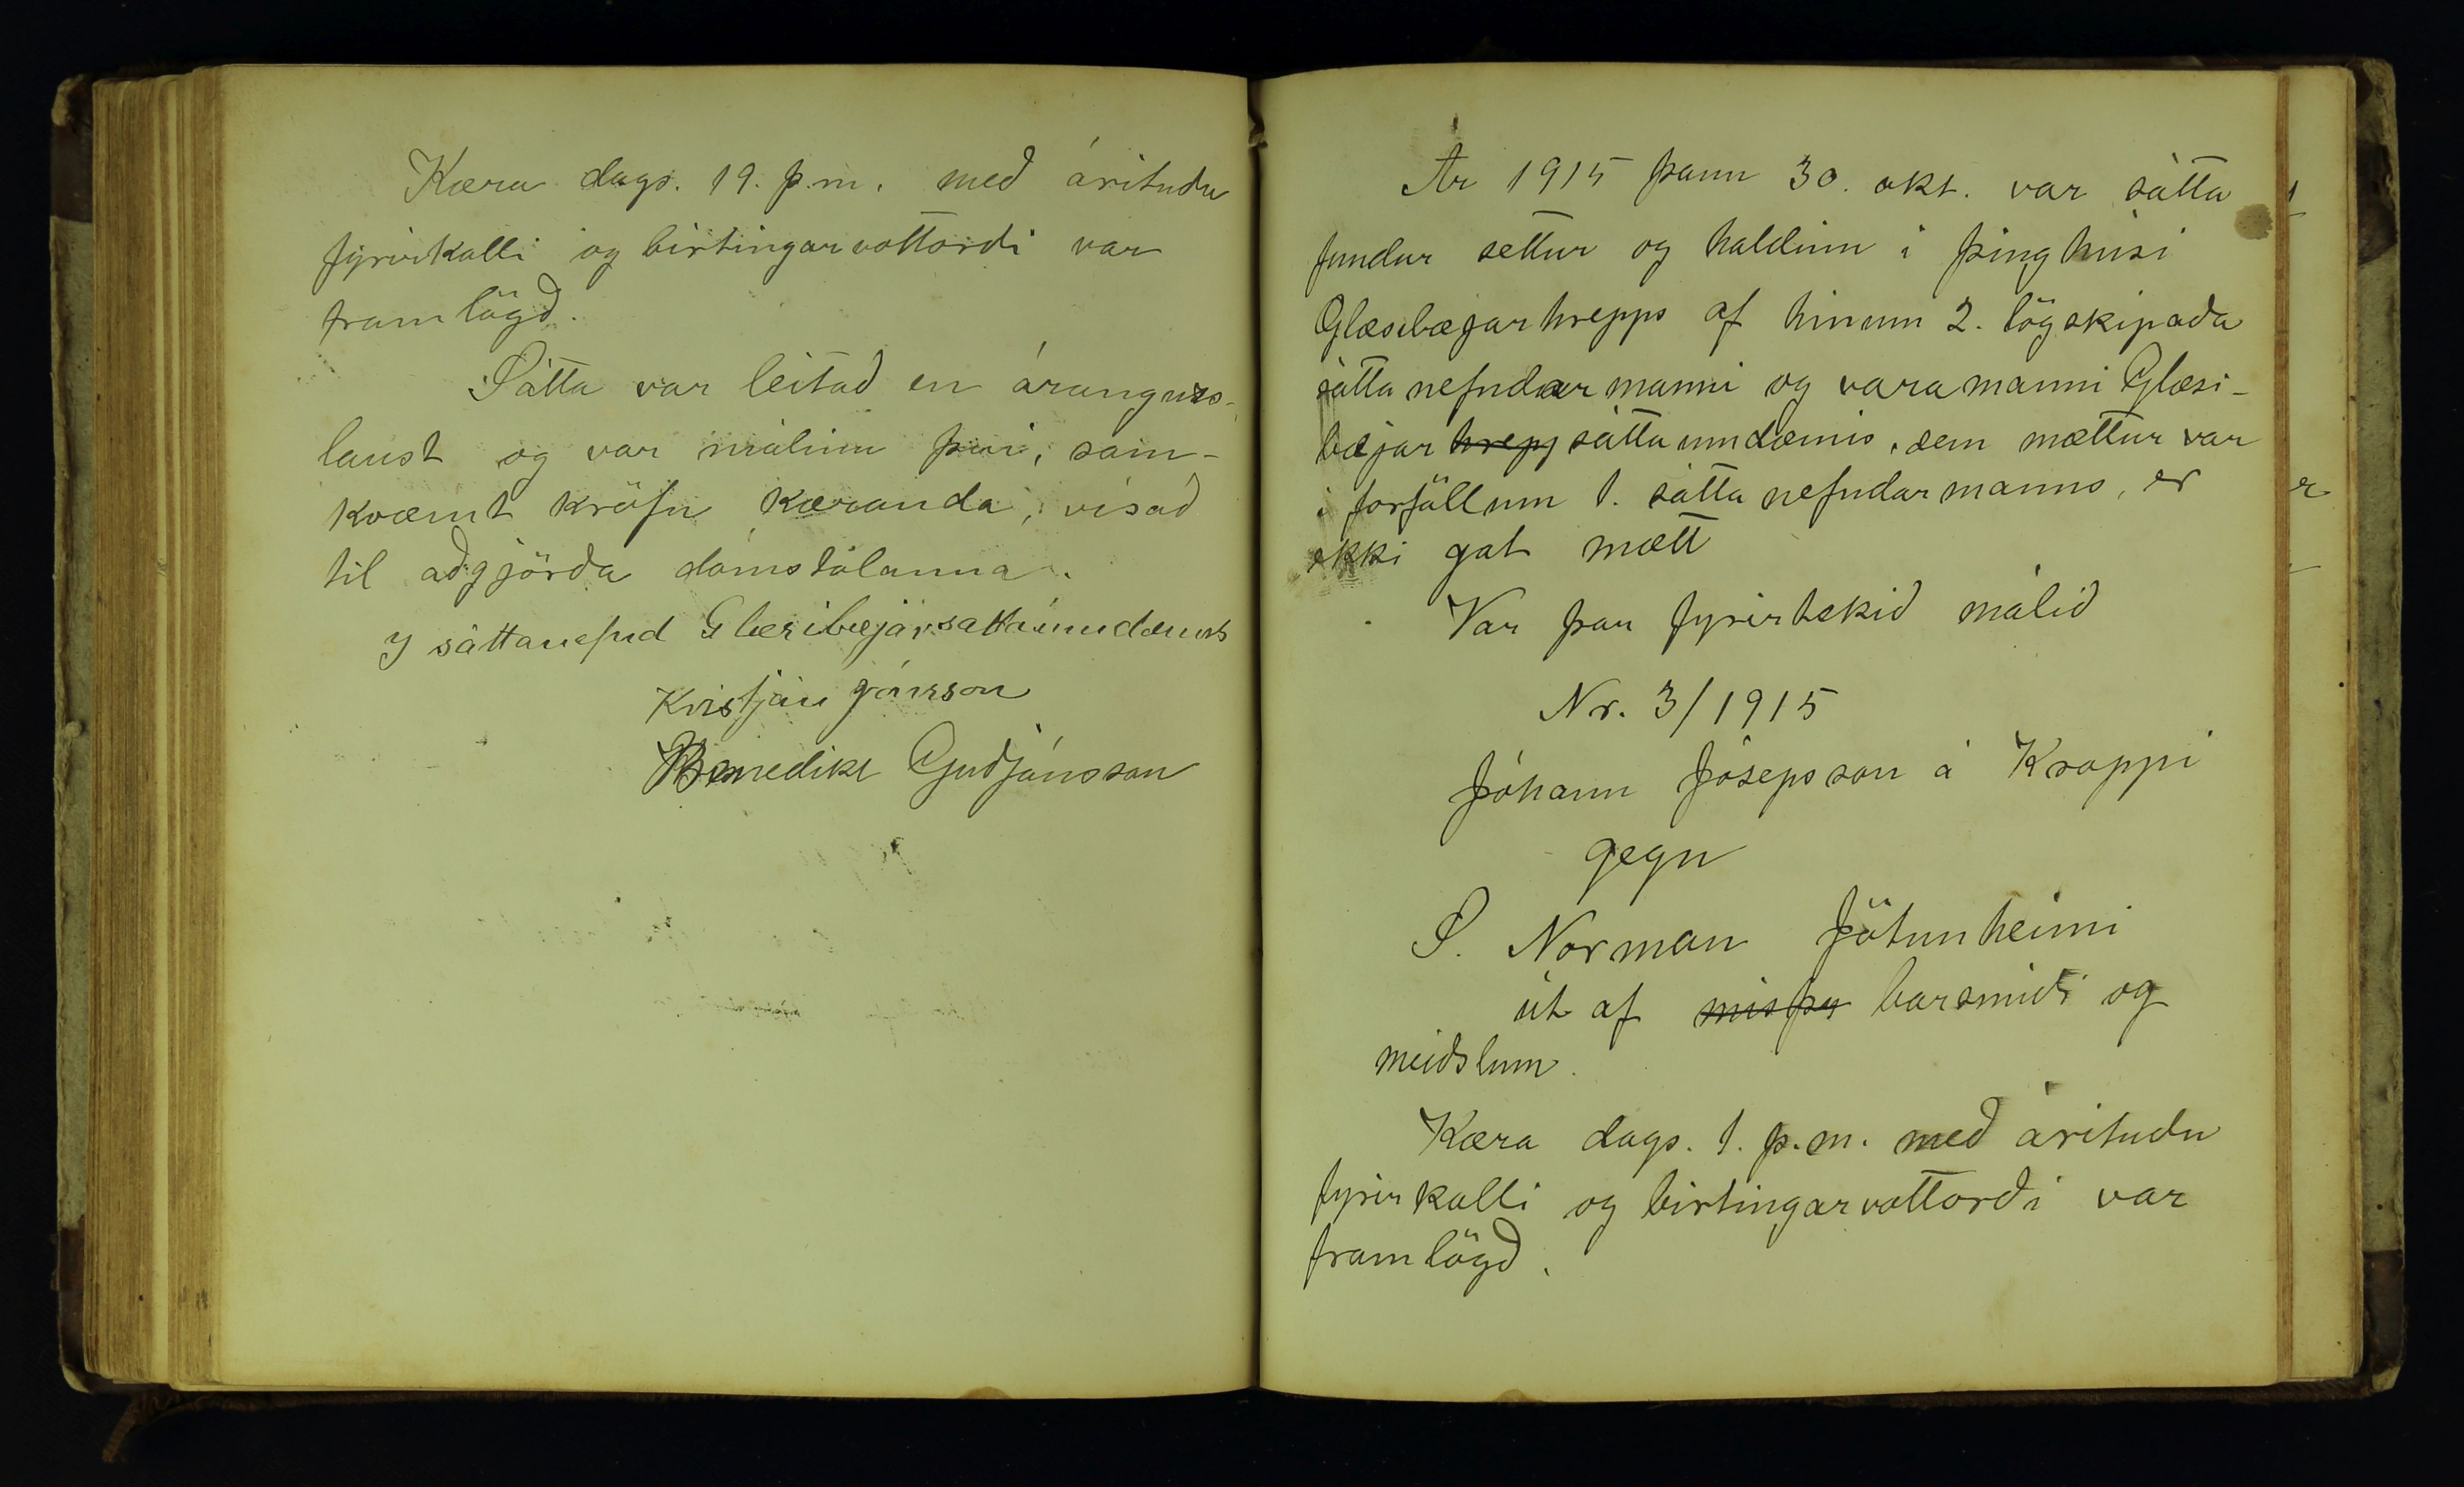 Kæra dags. 19. þ.m. með árituðu
fyrirkalli og birtingarvottorði var
framlögð.
Sátta var leitað en árangurs-
laust og var málinu því, sam-
kvæmt kröfu kæranda, vísað
til aðgjörða dómstólanna.
Í sáttanefnd Glæsibæjarsáttaumdæmis
Kristján Jónsson
Benedikt Guðjónsson
Ár 1915 þann 30. okt. var sátta
fundur settur og haldinn í þinghúsi
Glæsibæjarhrepps af hinum 2. lögskipaða
sáttanefndarmanni og varamanni Glæsi-
bæjar hrepp sáttaumdæmis, sem mættur var
í forföllum 1. sáttanefndarmanns, er
ekki gat mætt
Var þar fyrirtekið málið
Nr. 3/1915
Jóhann Jósepsson á Kroppi
gegn
S. Norman Jötunheimi
út af misþy barsmíði og
meiðslum.
Kæra dags. 1. þ.m. með árituðu
fyrirkalli og birtingarvottorði var
framlögð.